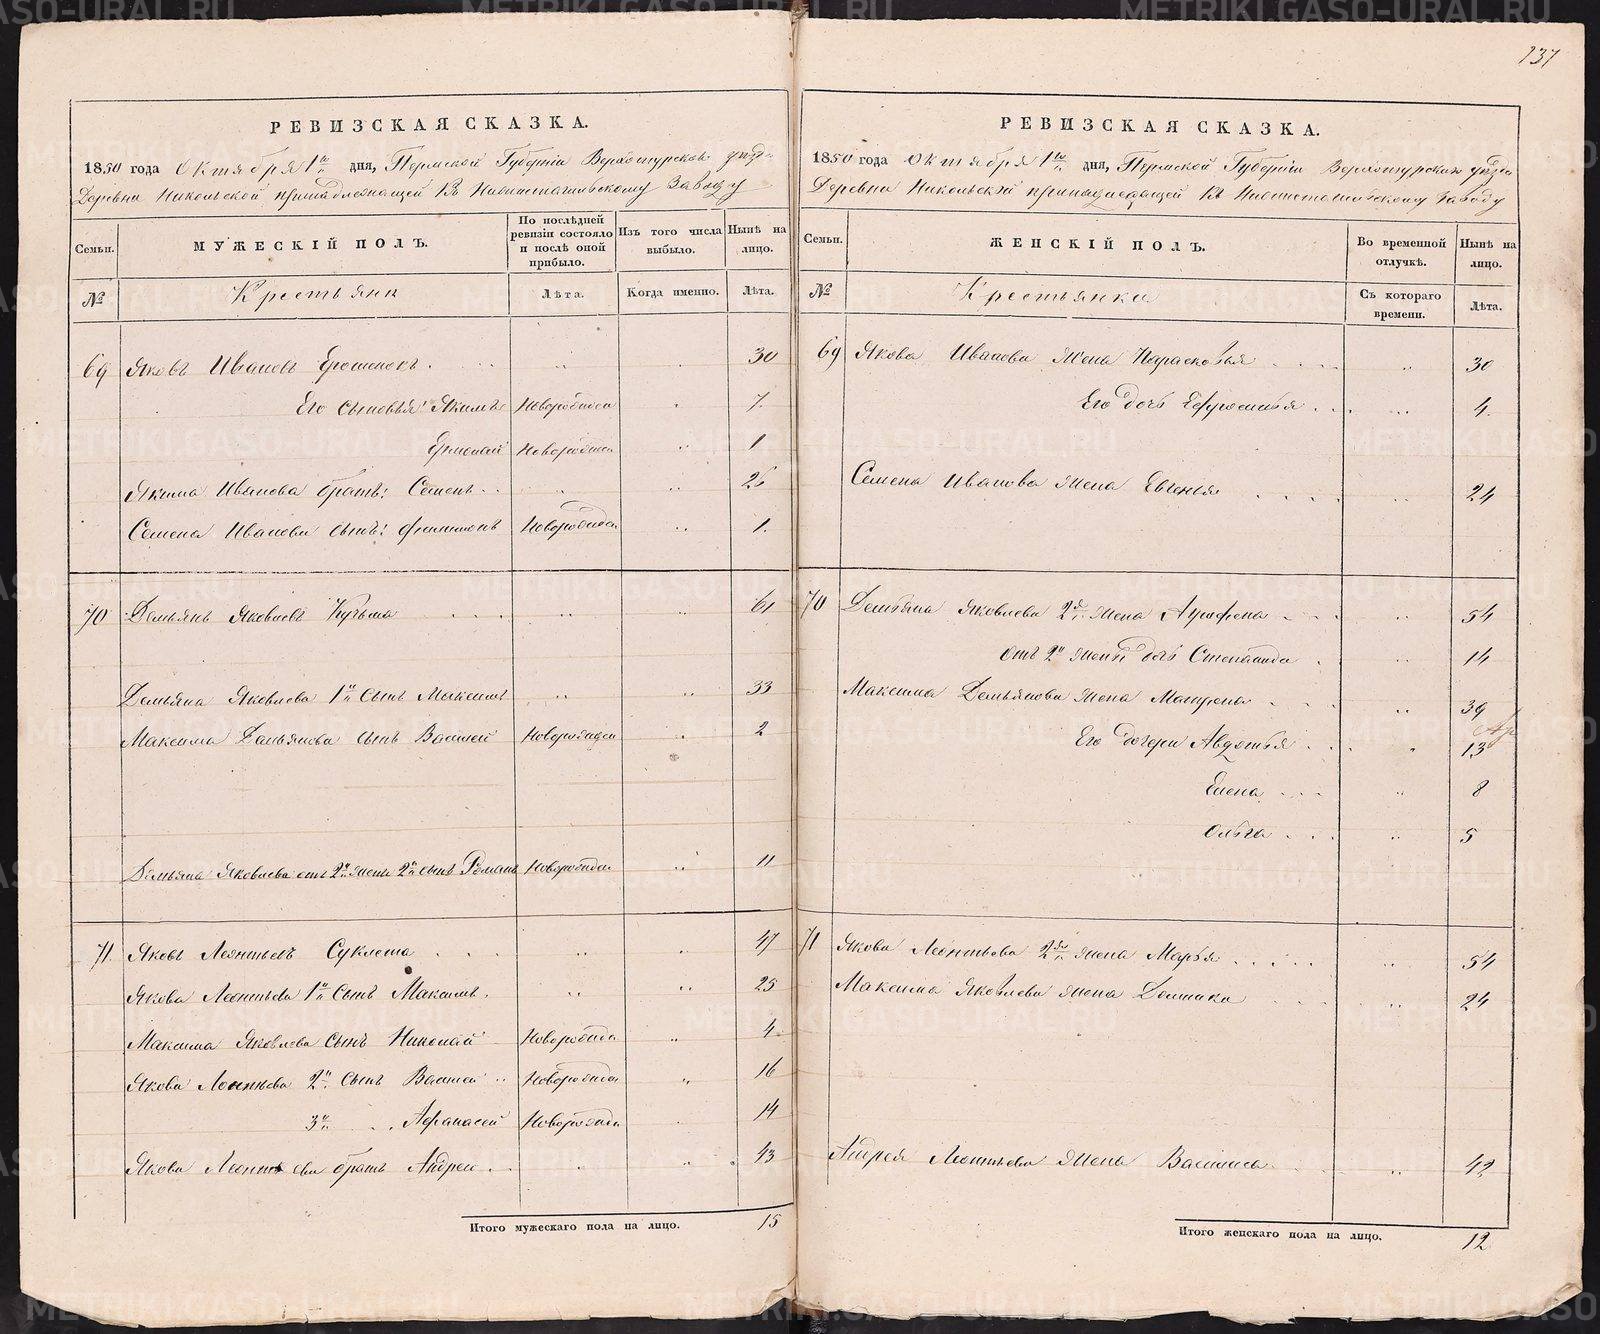 137
РЕВИЗСКАЯ СКАЗКА.
1850 года Октября 1го дня, Пермской Губернiи Верхотурскаго уезда
Деревни Никольской принадлежащей къ Заводу
Семьи.
МУЖЕСКIЙ ПОЛЪ.
По послѣдней ревизiи состояло и послѣ оной прибыло.
Изъ того числа выбыло.
Нынѣ на лицо.
№
Крестьяне
Лѣта.
Когда именно.
Лѣта.
69 Яковъ Ивановъ 30
Его сыновья: Якимъ Новорожден 7.
Ермолай Новорожден 1
Якима Иванова братъ: Семенъ 26
Семена Иванова сынъ: Филимонъ Новорожден 1.
70 Демьянъ Яковлевъ Кузьма 61
Демьяна Яковлева 1й сынъ Максимъ 33
Максима Демьянова сынъ Василей Новорожден 2
Демьяна Яковлева отъ 2й жены 2й сынъ Романъ Новорожден 11
71. Яковъ Леонтьевъ Суклета 47
Якова Леонтьева 1й сынъ Максимъ. 25
Максима Яковлева сынъ Николай Новорожден 4
Якова Леонтьева 2й сынъ Василей Новорожден 16
3й Афанасей Новорожден 14
Якова Леонтьева братъ Андрей 43
Итого мужескаго пола на лицо. 15
РЕВИЗСКАЯ СКАЗКА.
1850 года Октября 1го дня, Пермской Губернiи Верхотурскаго уезда
Деревни Никольской принадлежащей къ Заводу
Семьи.
ЖЕНСКIЙ ПОЛЪ.
Во временной отлучкѣ.
Нынѣ на лицо.
№
Крестьянки
Съ котораго времени.
Лѣта.
69 Якова Иванова жена Парасковья 30
Его дочь Ефросинья 4.
Семена Иванова жена Евгенья 24
70 Демьяна Яковлева 2я жена Аграфена 54
отъ 2й жены дочь Степанида 14
Максима Демьянова жена 39
Его дочери Авдотья 13
Елена 8
Ольга 5
71 Якова Леонтьева 2я жена Марья 54
Максима Яковлева жена Домника 24
Андрея Леонтьева жена Василиса 42
Итого женскаго пола на лицо. 12
METRIKI.GASO-URAL.RU